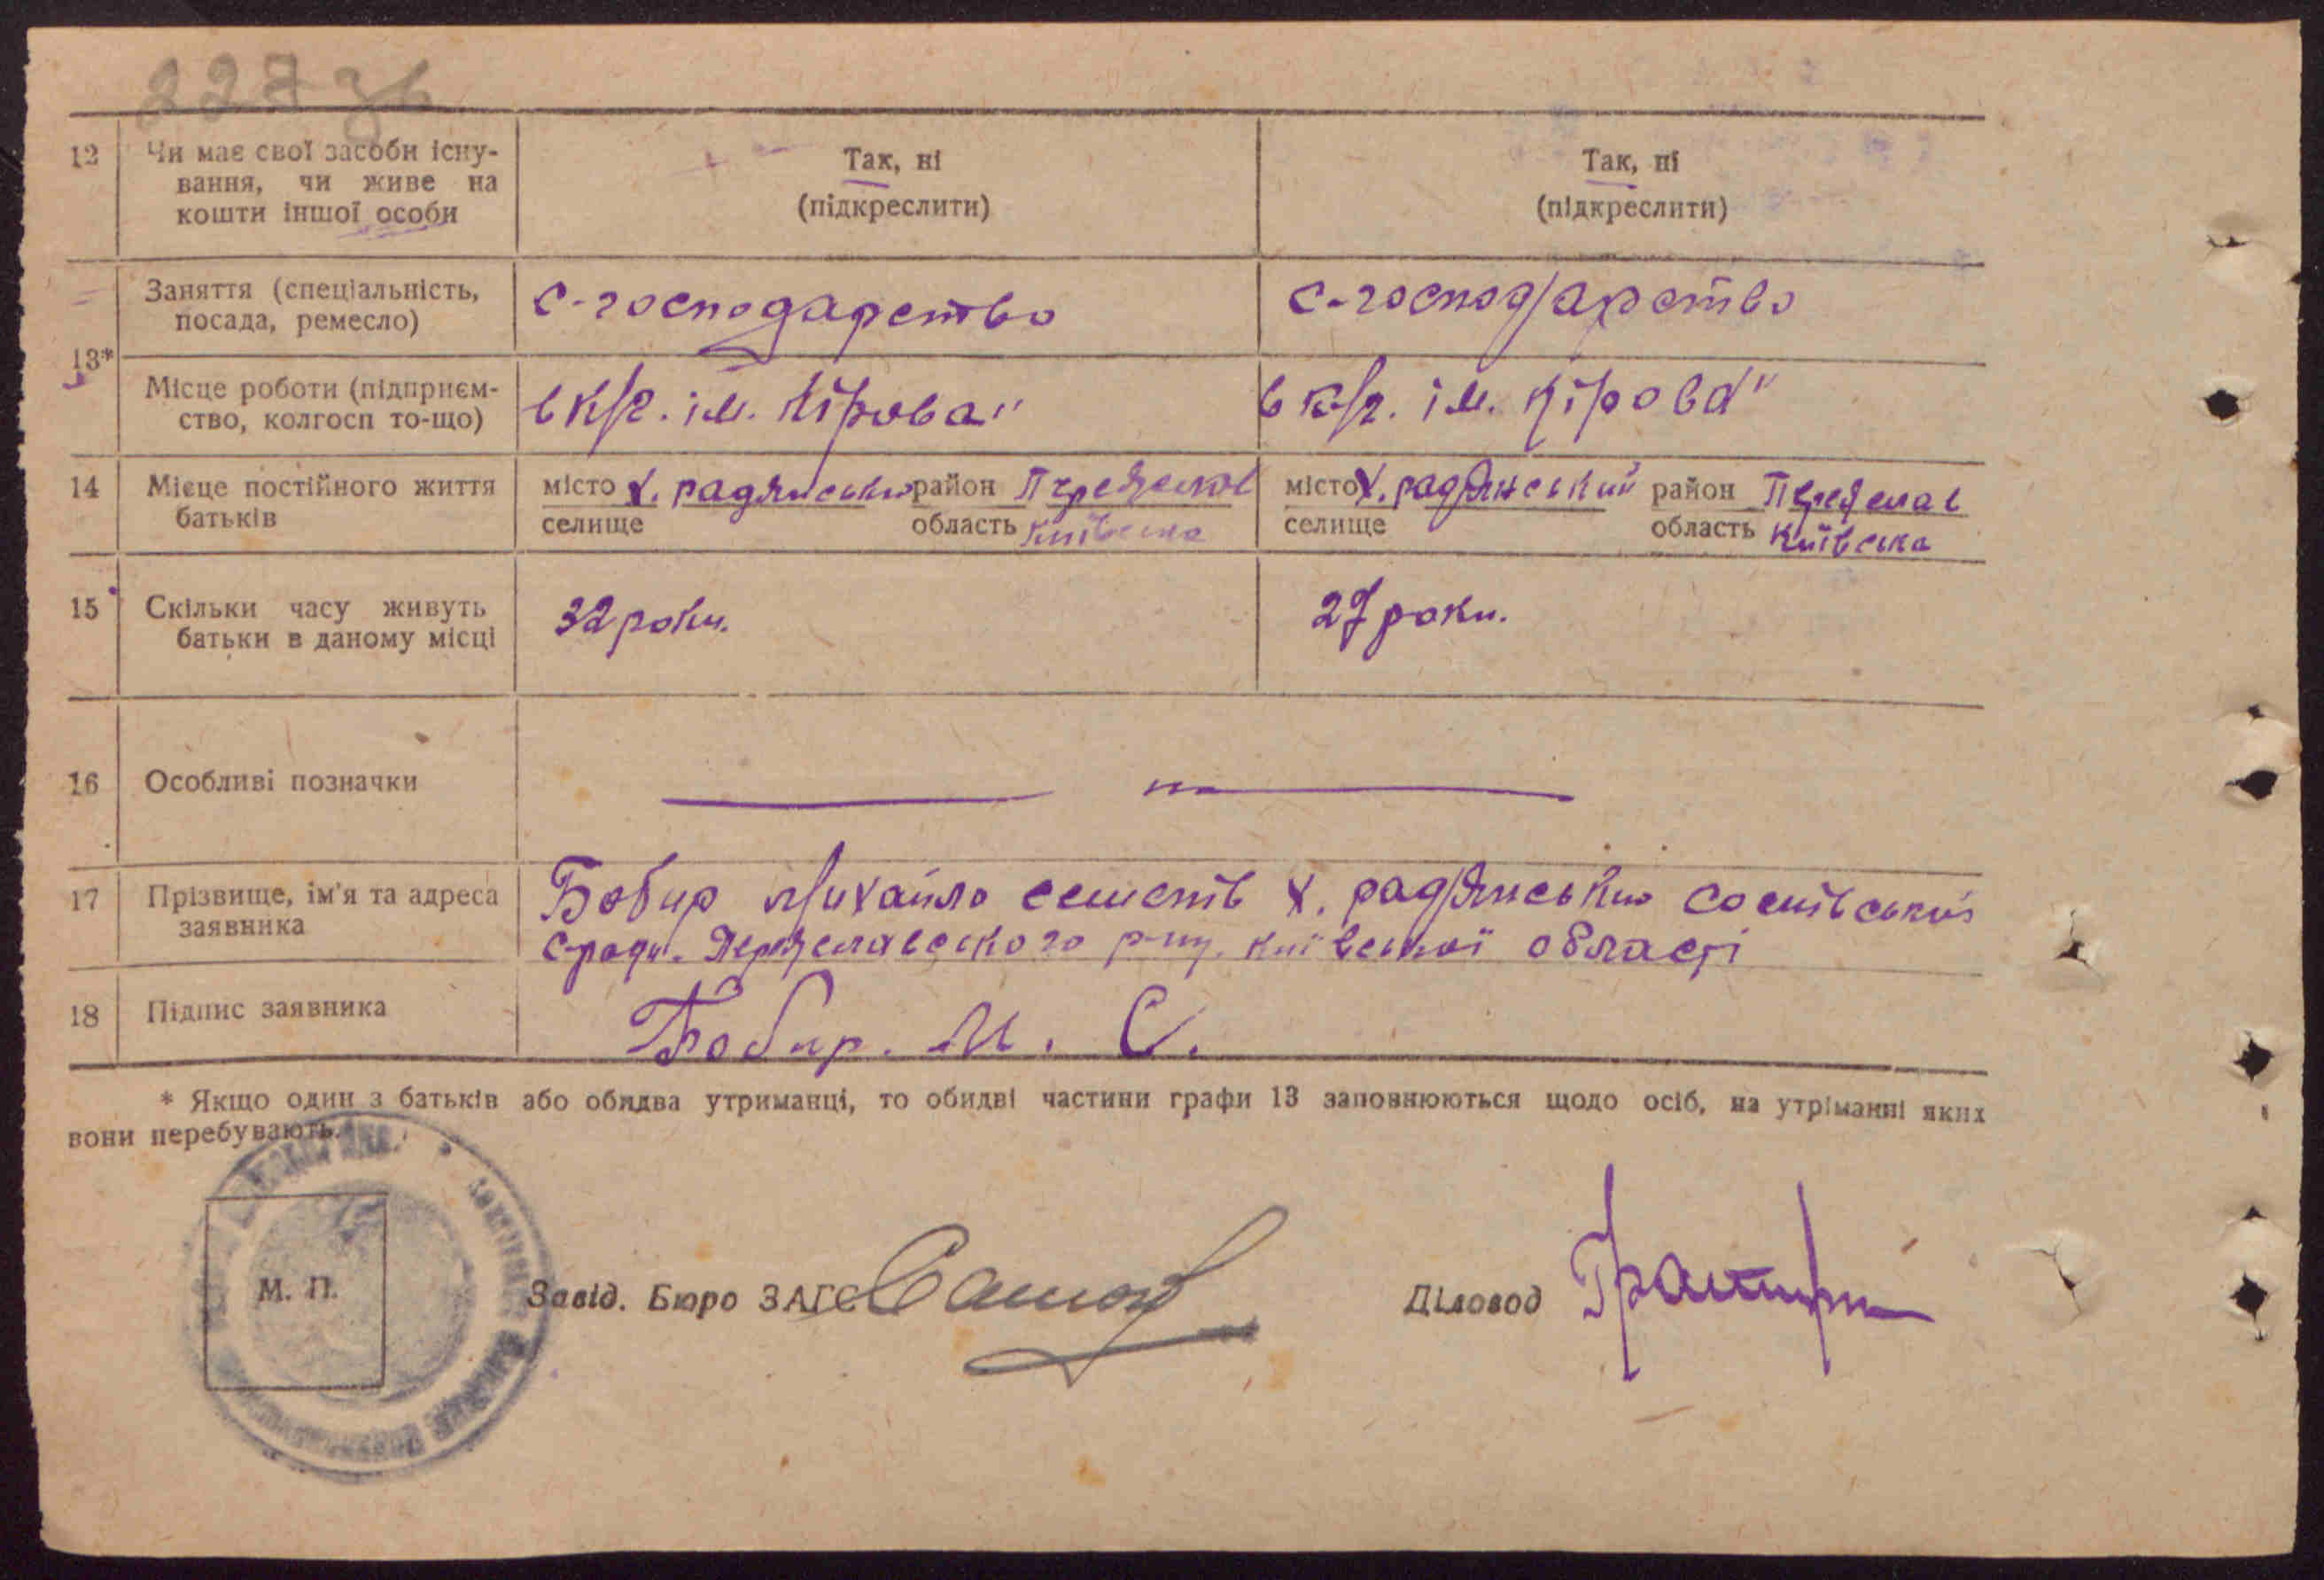 227 зв
12 Чи має свої засоби існу-
вання, чи живе на
кошти іншої особи
Так, ні
(підкреслити)
Так, ні
(підкреслити)
13*
Заняття (спеціальність,
посада, ремесло)
с-господарство
с-господарство
Місце роботи (підприєм-
ство, колгосп то-що)
в к/г. ім. Кірова"
в к/г. ім. Кірова"
14 Місце постійного життя
батьків
місто х. радянський район Переяслав
селище область Київська
місто х. радянський район Переяслав
селище область Київська
15 Скільки часу живуть
батьки в даному місці
32 роки.
27 роки.
16 Особливі позначки
17 Прізвище, ім'я та адреса
заявника
Бобир Михайло х. радянський
с/ради. Переяславського р-ну. Київської області
18 Підпис заявника
Бобир. М. С.
* Якщо один з батьків або обидва утриманці, то обидві частини графи 13 заповнюються щодо осіб, на утріманні яких
вони перебувають.
М. П.
Завід. Бюро ЗАГС
Діловод